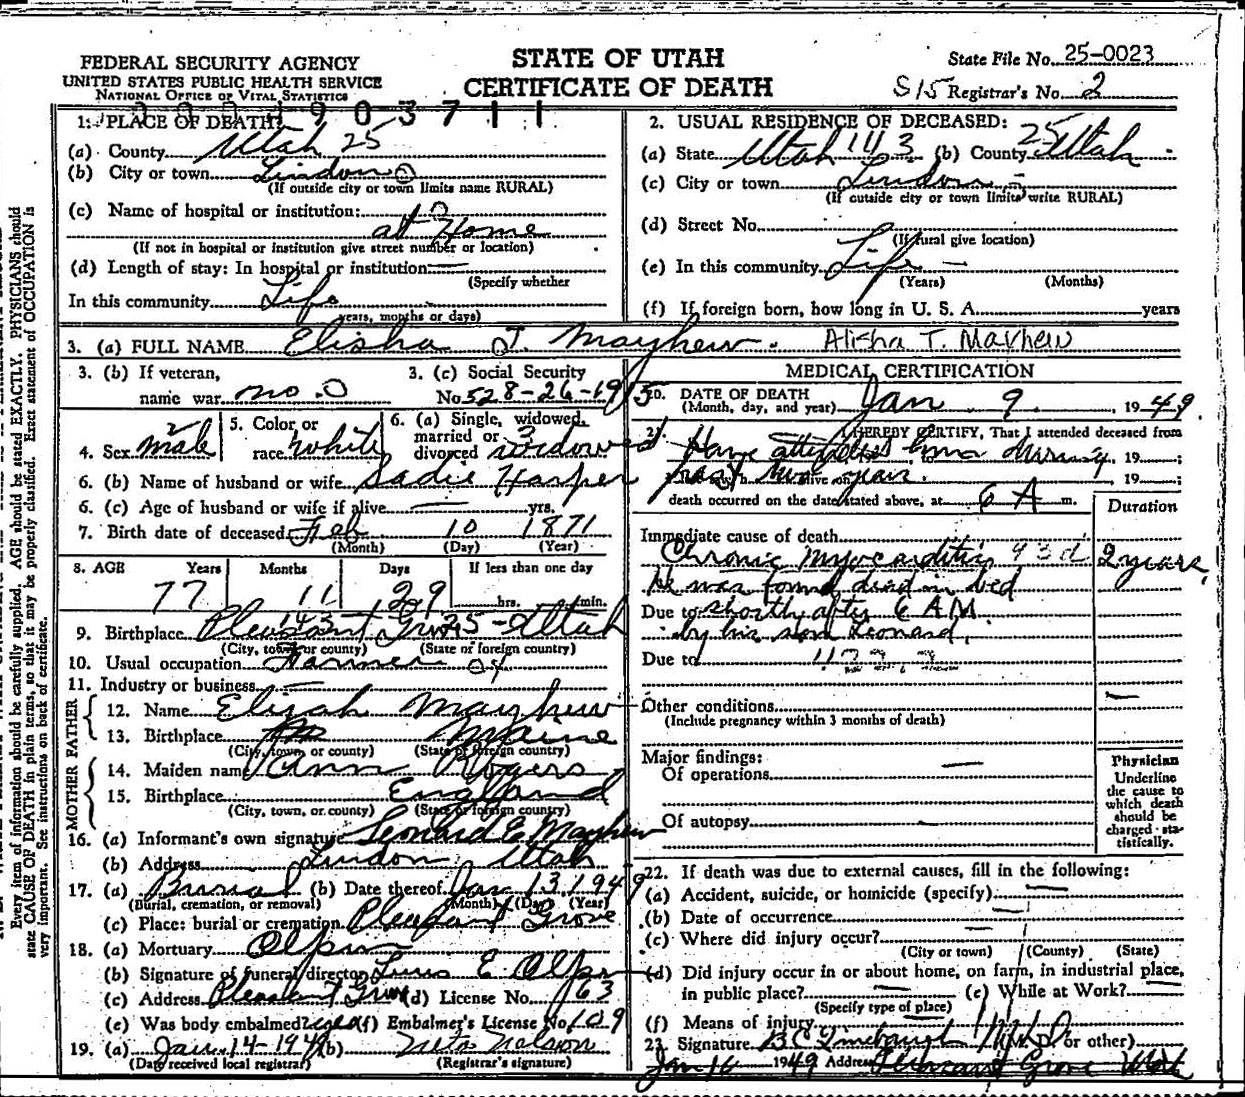 FEDERAL SECURITY AGENCY
UNITED STATES PUBLIC HEALTH SERVICE
NATIONAL OFFICE OF VITAL STATISTICS
STATE OF UTAH
CERTIFICATE OF DEATH
State File No. 25-0023
S15 Registrar's No. 2
1. PLACE OF DEATH:
(a) County Utah 25
(b) City or town Lindon
(If outside city or town limits name RURAL)
(c) Name of hospital or institution:
at Home
(If not in hospital or institution give street number or location)
(d) Length of stay: In hospital or institution: —
(Specify whether
In this community Life
years, months or days)
2. USUAL RESIDENCE OF DECEASED:
(a) State Utah 143 (b) County 25 Utah
(c) City or town Lindon
(If outside city or town limits write RURAL)
(d) Street No.
(If rural give location)
(e) In this community Life —
(Years) (Months)
(f) If foreign born, how long in U. S. A. years
3. (a) FULL NAME Elisha T. Mayhew. Alisha T. Mayhew
3. (b) If veteran,
name war no. 0
3. (c) Social Security
No. 528-26-1915
4. Sex male 5. Color or race white
6. (a) Single, widowed, married or divorced widowed
6. (b) Name of husband or wife Sadie Harper
6. (c) Age of husband or wife if alive — yrs.
7. Birth date of deceased Feb 10 1871
(Month) (Day) (Year)
8. AGE Years Months Days If less than one day
77 11 29 hrs. min.
9. Birthplace Pleasant Grove 25 - Utah
(City, town or county) (State or foreign country)
10. Usual occupation Farmer
11. Industry or business —
FATHER
12. Name Elijah Mayhew
13. Birthplace Maine
(City, town or county) (State of foreign country)
MOTHER
14. Maiden name Ann Rogers
15. Birthplace England
(City, town, or county) (State or foreign country)
16. (a) Informant's own signature Leonard E. Mayhew
(b) Address Lindon, Utah
17. (a) Burial (b) Date thereof Jan 13 1949
(Burial, cremation, or removal) (Month) (Day) (Year)
(c) Place: burial or cremation Pleasant Grove
18. (a) Mortuary Olpin
(b) Signature of funeral director E Olpin
(c) Address Pleasant Grove (d) License No. 163
(e) Was body embalmed? yes (f) Embalmer's License No. 109
19. (a) Jan. 14-194 (b) Neta Nelson
(Date received local registrar) (Registrar's signature)
MEDICAL CERTIFICATION
20. DATE OF DEATH
(Month, day, and year) Jan. 9, 1949
21. I HEREBY CERTIFY, That I attended deceased from
Have attended him during, 19 ;
past year. 19 ;
death occurred on the date stated above, at 6 A m.
Duration
Immediate cause of death
Chronic Myocarditis 93d 2 years,
He was found dead in bed
Due to shortly after 6 A.M.
by his son Leonard.
Due to
Other conditions —
(Include pregnancy within 3 months of death)
Major findings:
Of operations —
Of autopsy -
Physician
Underline
the cause to
which death
should be
charged sta-
tistically.
22. If death was due to external causes, fill in the following:
(a) Accident, suicide, or homicide (specify) —
(b) Date of occurrence —
(c) Where did injury occur? —
(City or town) (County) (State)
(d) Did injury occur in or about home, on farm, in industrial place,
in public place? — (e) While at Work? —
(Specify type of place)
(f) Means of injury
23. Signature (M. D. or other)
Jan 16 1949 Address Pleasant Grove Utah
Every item of information should be carefully supplied. AGE should be stated EXACTLY. PHYSICIANS should
state CAUSE OF DEATH in plain terms, so that it may be properly classified. Exact statement of OCCUPATION is
very important. See instructions on back of certificate.